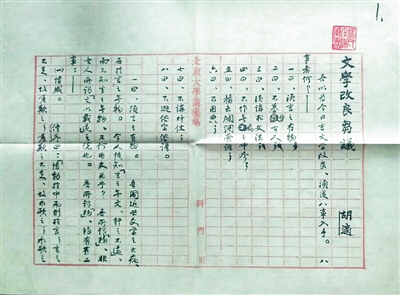 1.
文學改良芻議
胡適
吾以為今日言文學改良，須從八事入手。八
事者何？
一曰，須言之有物。
二曰，不摹仿古人。
三曰，須講求文法。
四曰，不作無病之呻吟。
五曰，務去爛調套語。
六曰，不用典。
七曰，不講對仗。
八曰，不避俗字俗語。
北京大學
科 門
一曰，須言之有物。 吾國近世文學之大病，
在於言之無物。今人徒知言之無文，行之不遠，
而不知言之無物，又何用文為乎？吾所謂物，非
古人所謂文以載道之說也。吾所謂物，約有二
事：
(一)情感。 詩序曰：情動於中而形於言。言之
不足，故嗟歎之。嗟歎之不足，故永歌之。永歌之